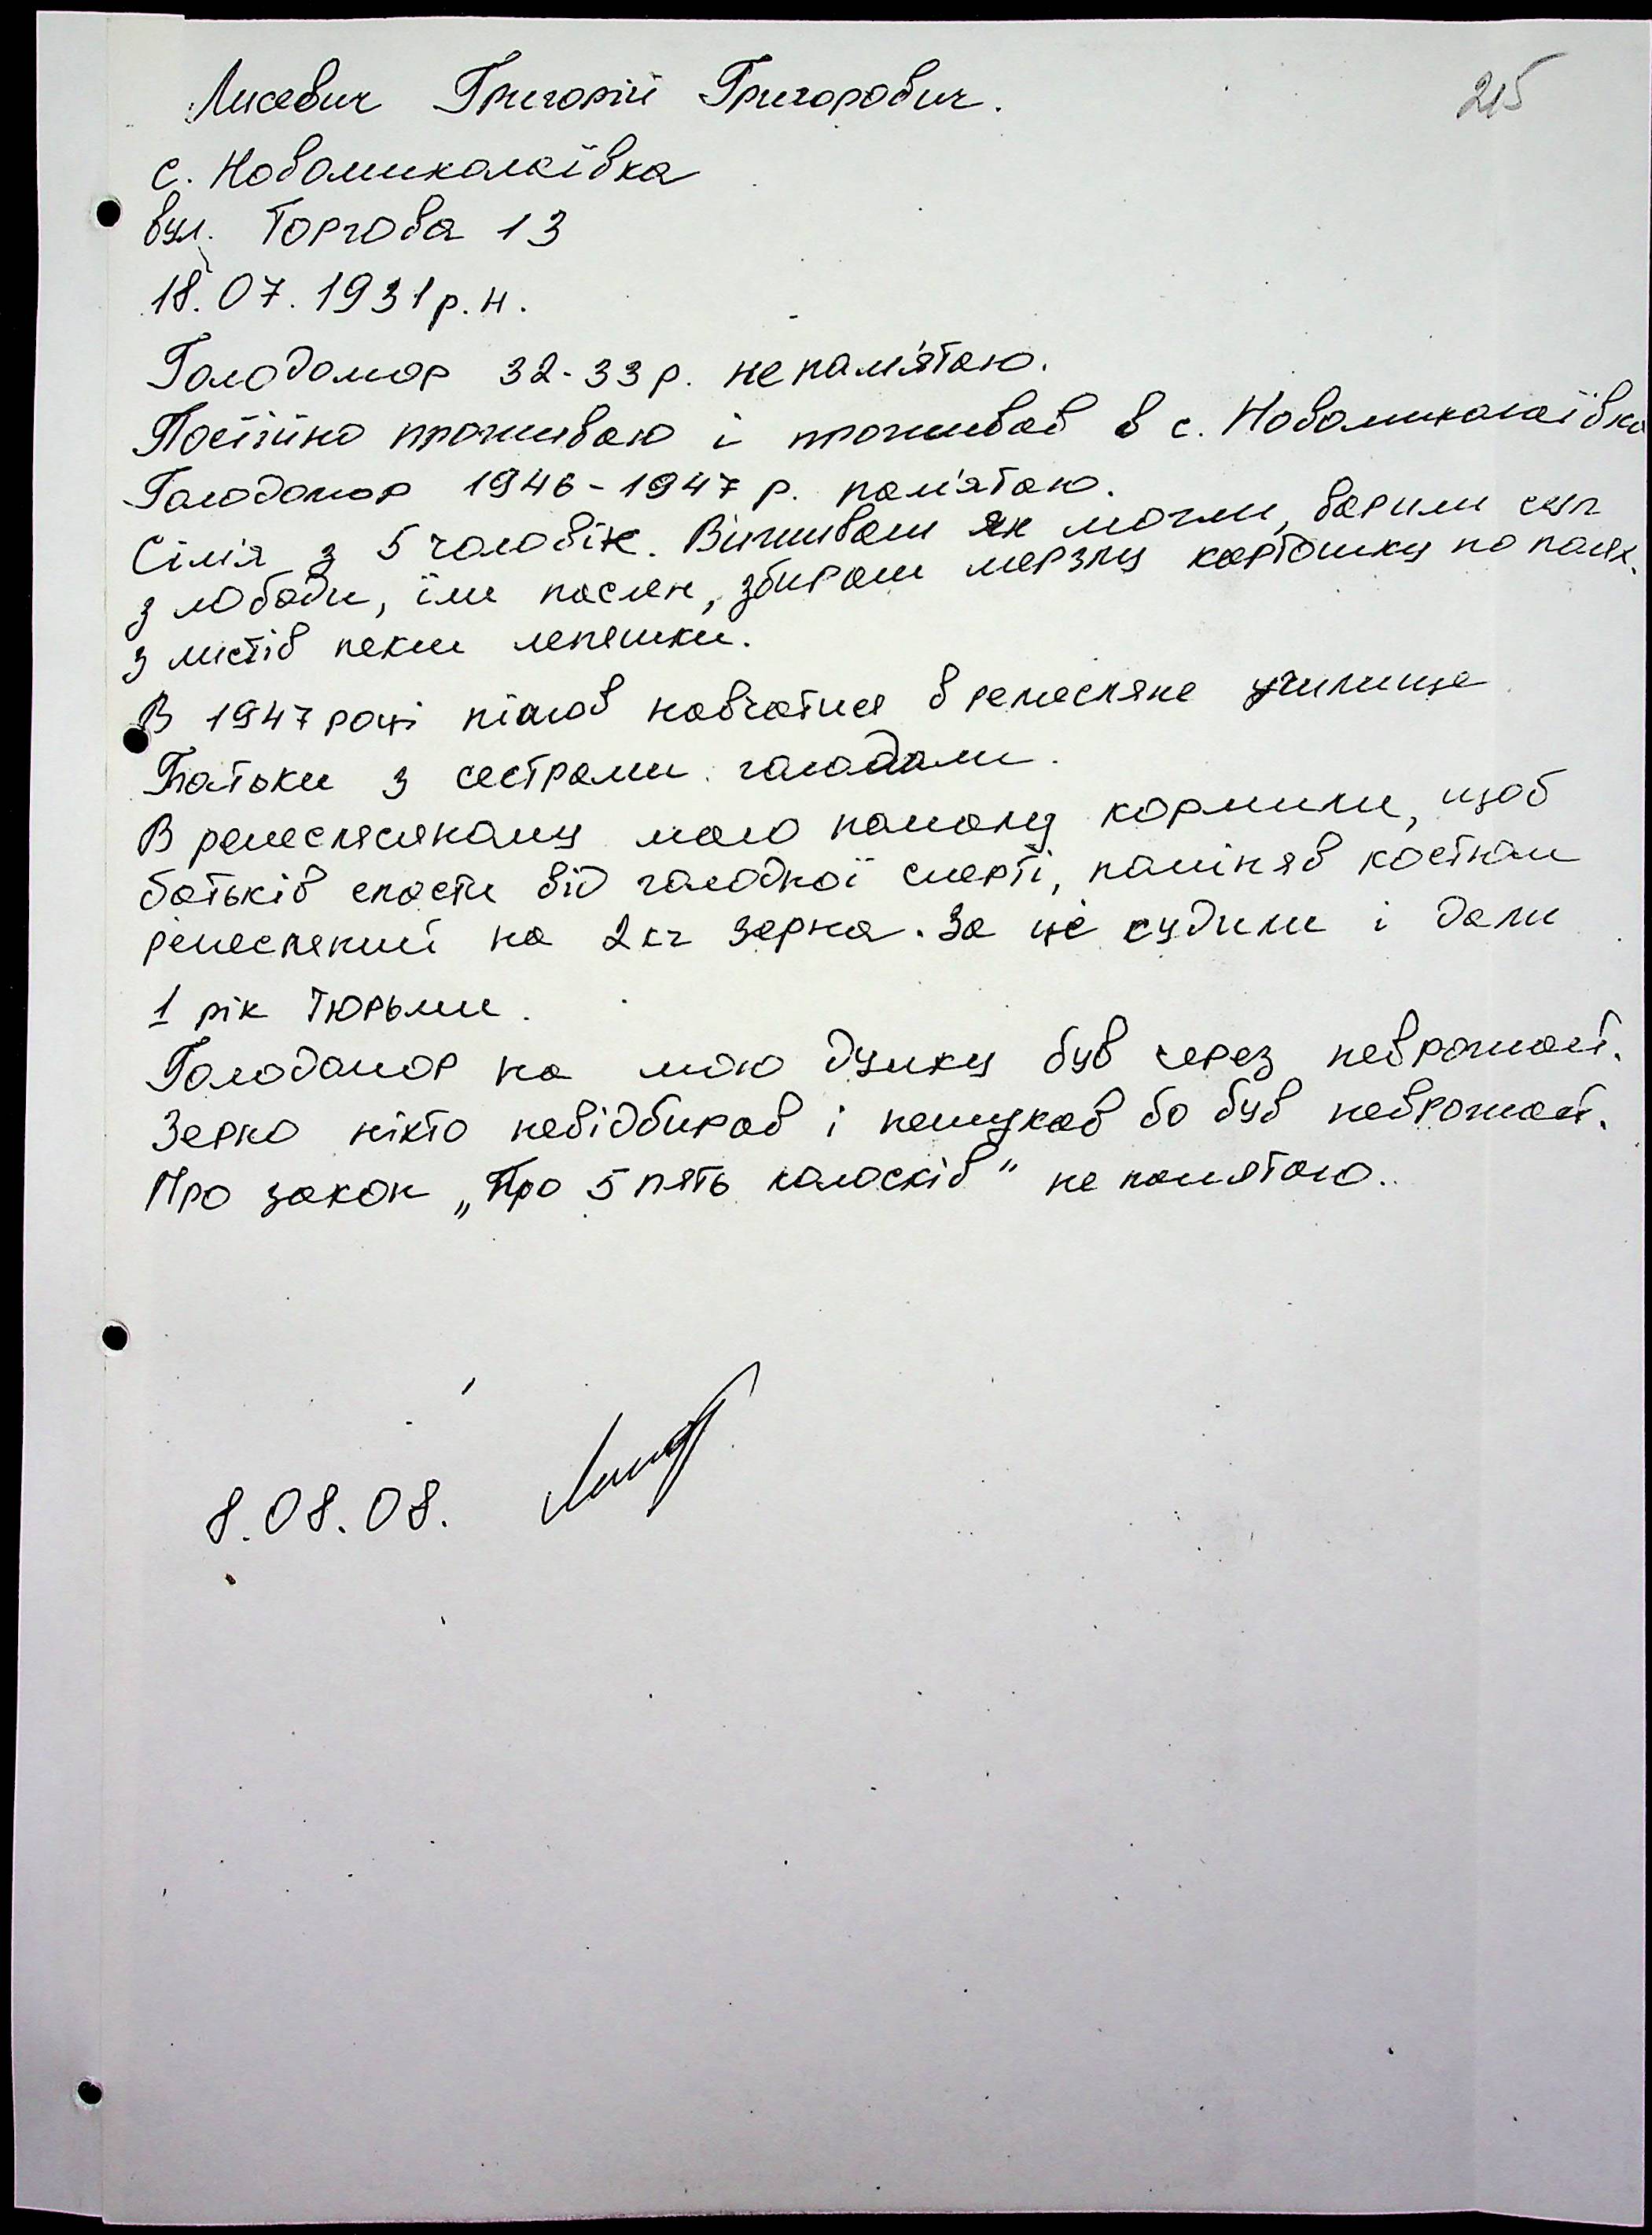 Лисевич Григорій Григорович.
215
с. Новомиколаївка
вул. Торгова 13
18.07.1931 р.н.
Голодомор 32-33 р. не пам'ятаю.
Постійно проживаю і проживав в с. Новомиколаївка
Голодомор 1946-1947 р. пам'ятаю.
Сім'я з 5 чоловік. Виживали як могли, варили суп
з лободи, їли паслен, збирали мерзлу картошку по полях.
з листів пекли лепешки.
В 1947 році пішов навчатися в ремесляне училище
Батьки з сестрами голодали.
В ремеслясляному мало помалу кормили, щоб
батьків спасти від голодної смерті, поміняв костюм
ремесляний на 2 кг зерна. За це судили і дали
1 рік тюрьми.
Голодомор на мою думку був через неврожай.
Зерно ніхто невідбирав і нешукав бо був неврожай.
Про закон „Про 5 пять колосків" не помятаю..
8.08.08.